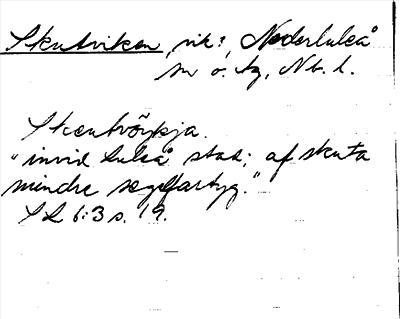 Skutviken, vik?, Nederluleå
sn o. tg, Nb. l.
"invid Luleå stad; af skuta
mindre segelfartyg."
SL 6:3 s. 19.